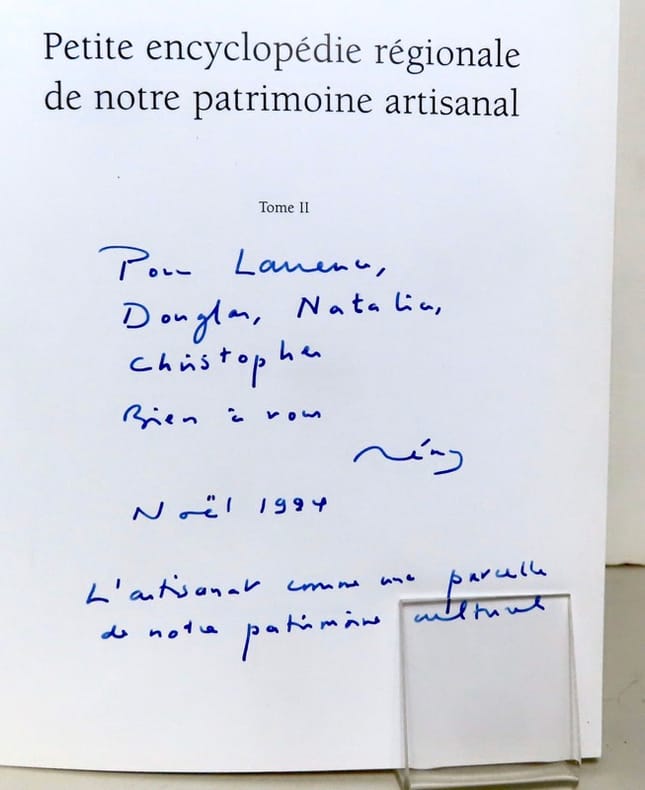 Petite encyclopédie régionale
de notre patrimoine artisanal
Tome II
Pour Laurence,
Douglas, Natalia,
Christopher
Bien à vous
Rémy
Noël 1994
L'artisanat comme une parcelle
de notre patrimoine culturel